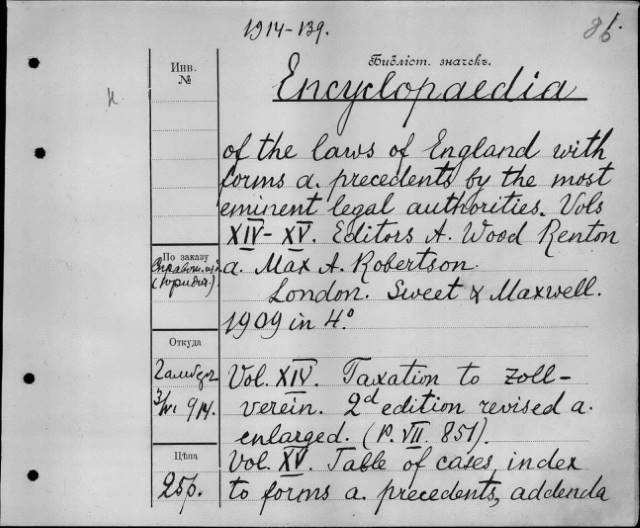 1914-139.
Библіот. значекъ.
Инв.
№
Encyclopaedia
of the laws of England with
forms a. precedents by the most
eminent legal authorities. Vols
XIV-XV. Editors A. Wood Renton
По заказу
a. Max A. Robertson.
London. Sweet & Maxwell.
1909 in 4.°
Откуда
Vol. XIV. Taxation to zoll-
914.
verein. 2d edition revised a.
enlarged. (P. VII. 851).
Цѣна
Vol. XV. Table of cases, index
25р.
to forms a. precedents, addenda